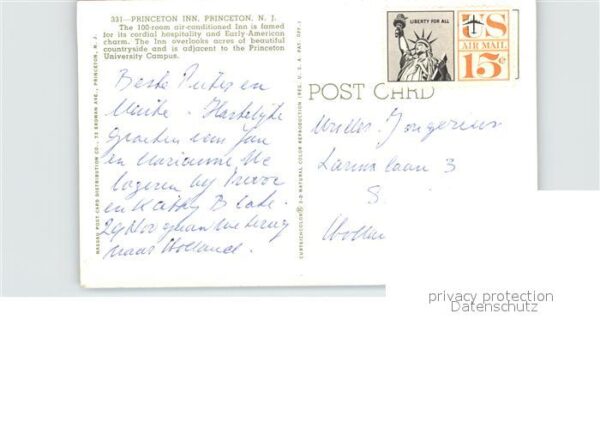 331—PRINCETON INN, PRINCETON, N. J.
The 100-room air-conditioned Inn is famed
for its cordial hospitality and Early-American
charm. The Inn overlooks acres of beautiful
countryside and is adjacent to the Princeton
University Campus.
LIBERTY FOR ALL
US
AIR MAIL
15¢
POST CARD
Beste Peter en
Hartelijke
groeten van Jan
en Marianne. We
logeren bij Trevor
en Kathy
29 Nov gaan we terug
naar Holland.
Jongerius
Laan 3
NASSAU POST CARD DISTRIBUTION CO., 72 ERDMAN AVE., PRINCETON, N. J.
CURTEICHCOLOR® 3-D NATURAL COLOR REPRODUCTION (REG. U. S. A. PAT. OFF.)
privacy protection
Datenschutz